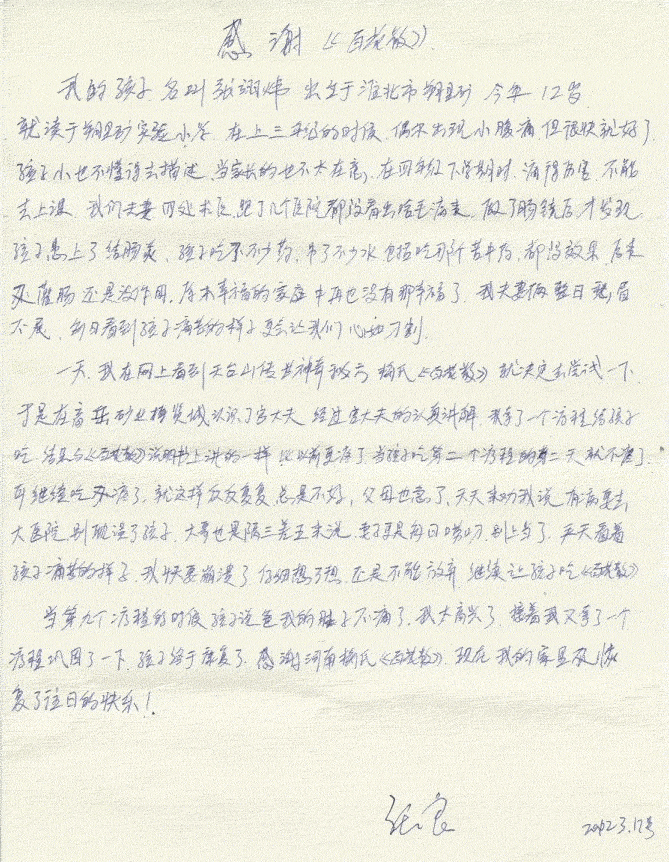 感谢《百花散》
我的孩子 名叫张翊炜 出生于淮北市朔里矿 今年12岁
就读于朔里矿实验小学 在上三年级的时候 偶尔出现小腹痛 但很快就好了
孩子小也不懂得去描述 当家长的也不太在意, 在四年级下学期时 痛得厉害 不能
去上课 我们夫妻四处求医 跑了几个医院都没看出啥毛病来 做了肠镜后才发现
孩子患上了结肠炎 孩子吃了不少药 吊了不少水 包括吃那个苦中药 都没效果 后来
又灌肠 还是没作用, 原本幸福的家庭中再也没有那幸福了 我夫妻俩整日愁眉
不展, 每日看到孩子痛苦的样子更会让我们心如刀割.
一天 我在网上看到天台山传世神奇秘方 梅氏《百花散》就决定去尝试一下
于是在高岳矿业商贸城认识了宫大夫 经过宫大夫的认真讲解 我拿了一个疗程给孩子
吃 结果与《百花散》说明书上讲的一样 比以前更疼了 当孩子吃第二个疗程的第二天就不疼了
可继续吃又疼了 就这样反反复复 总是不好, 父母也急了 天天来劝我说 有病要去
大医院 别耽误了孩子. 大哥也是隔三差五来说 妻子更是每日唠叨 别上当了 天天看着
孩子痛苦的样子 我快要崩溃了 仔细想了想 还是不能放弃 继续让孩子吃《百花散》
当第九个疗程的时候 孩子说爸我的肚子不痛了 我太高兴了 接着我又拿了一个
疗程巩固了一下 孩子终于康复了 感谢河南梅氏《百花散》现在 我的家里又恢
复了往日的快乐!
张良
2012.3.17号